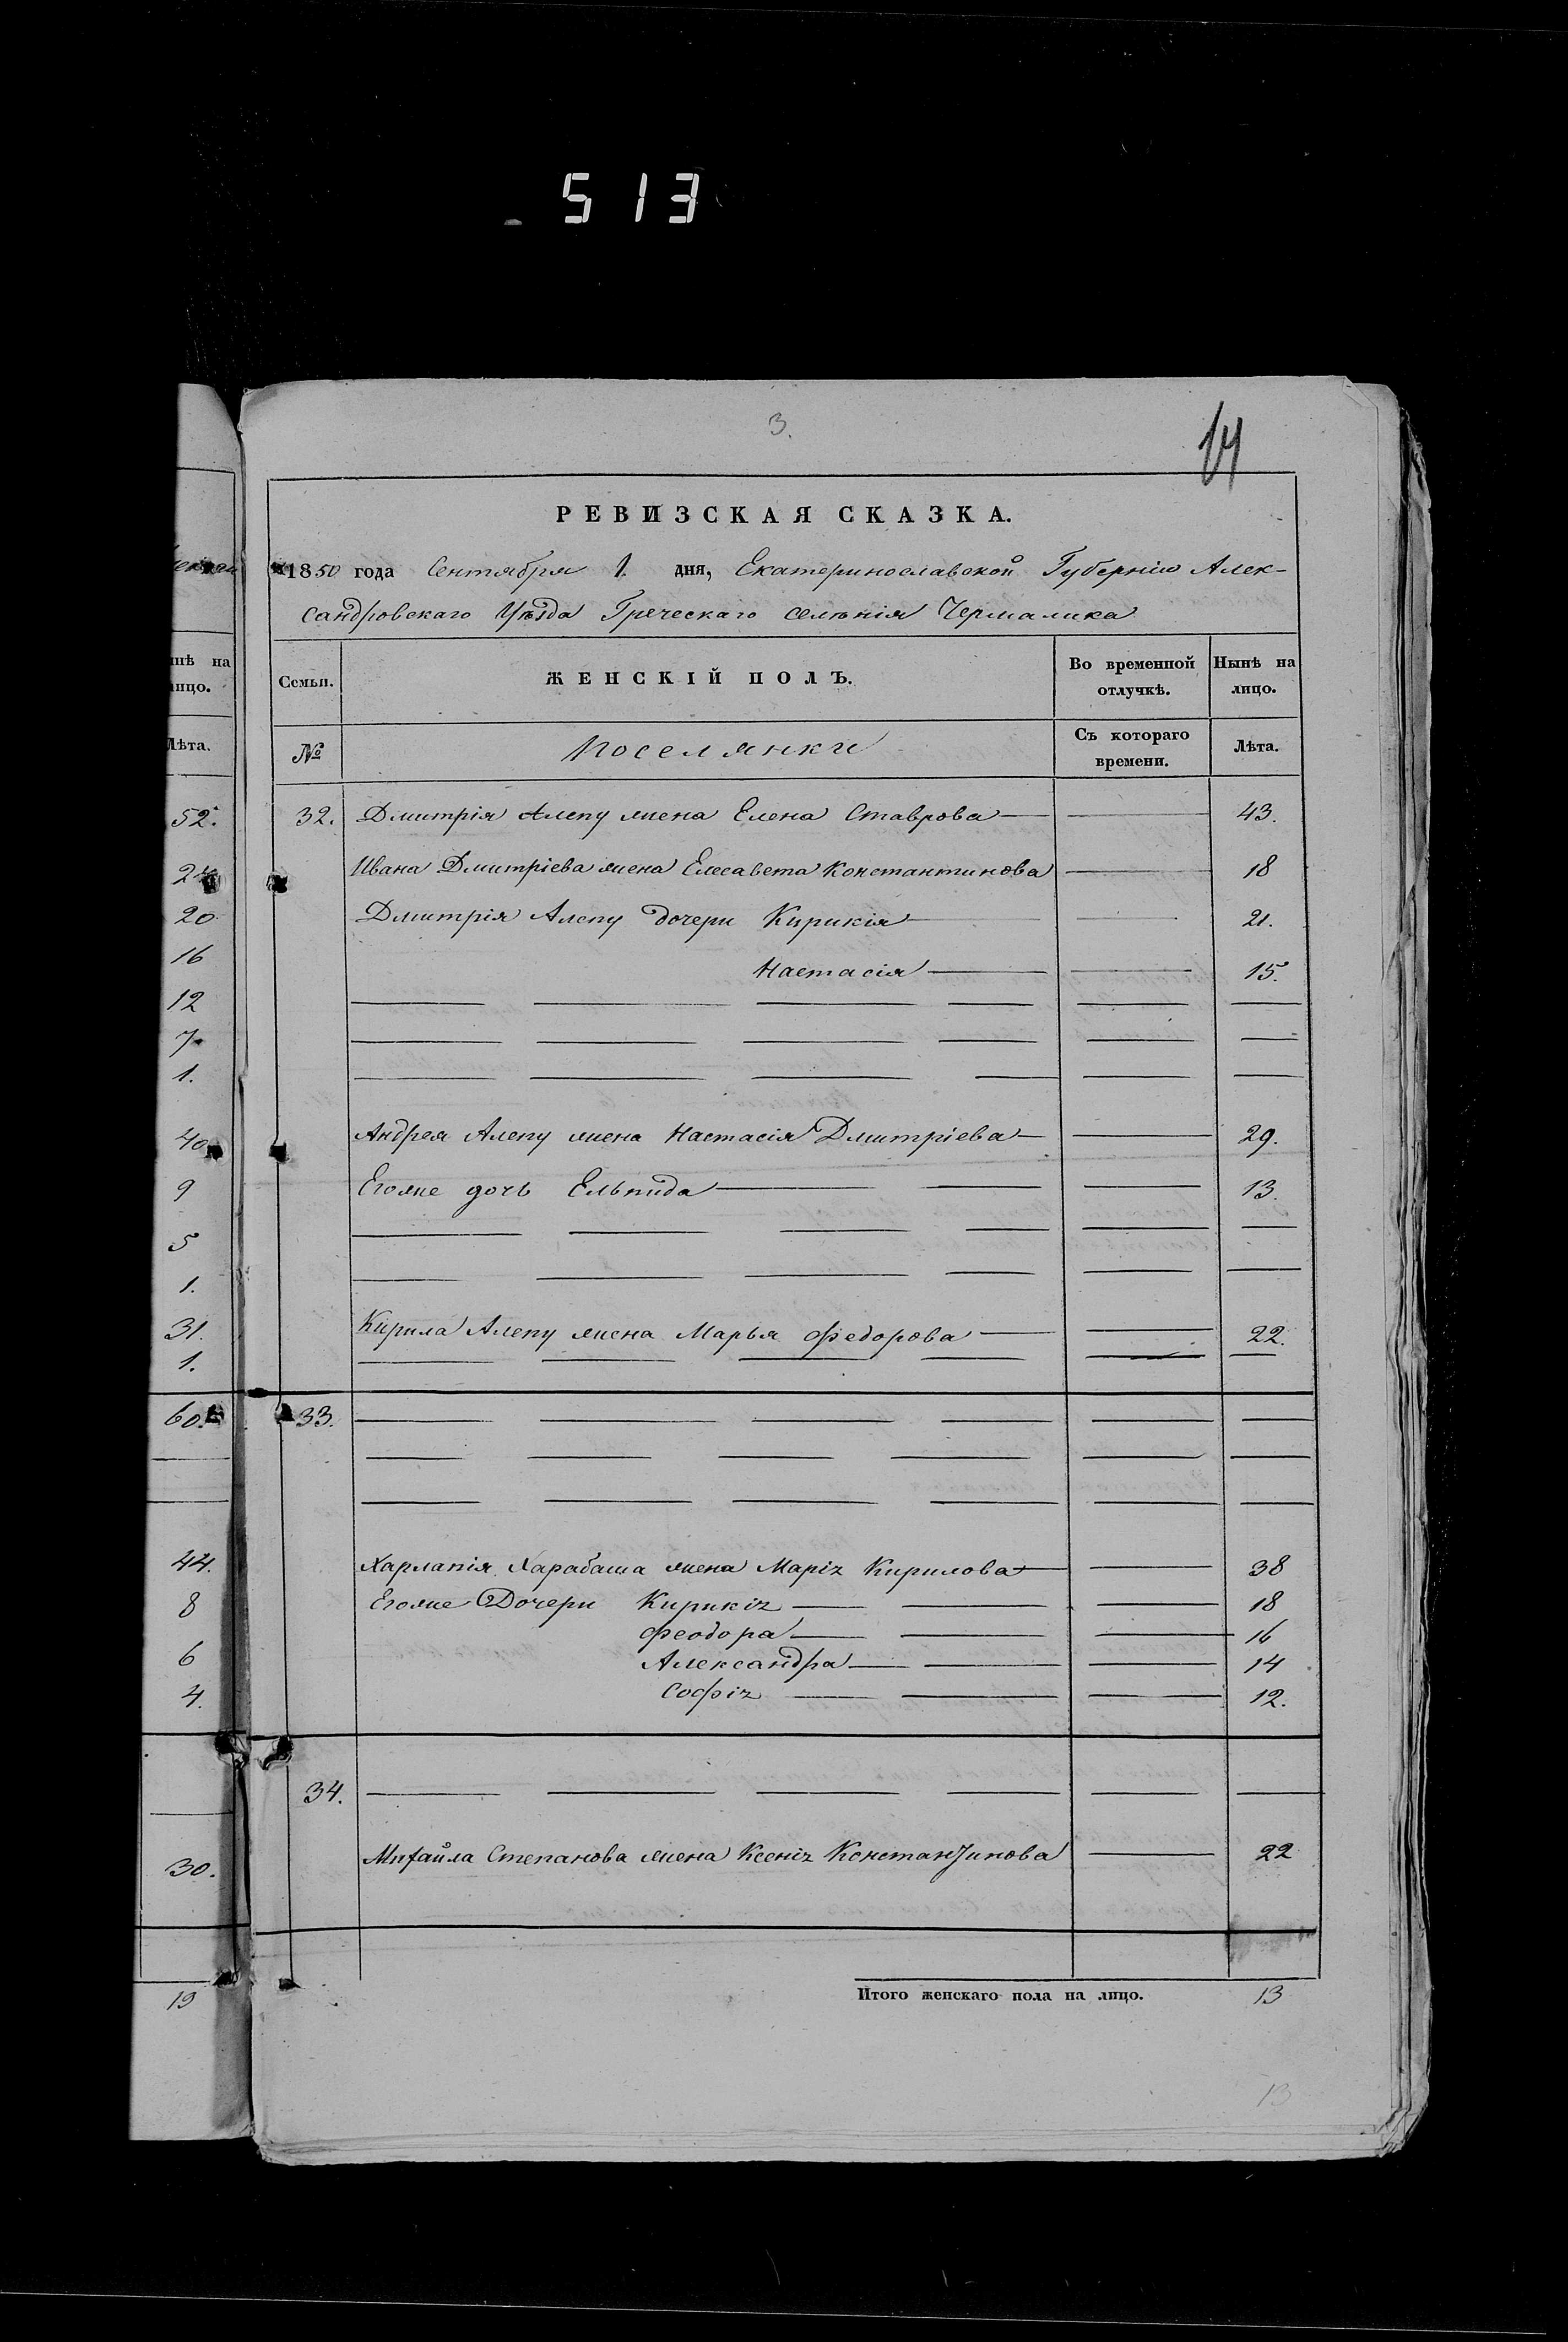 513
3.
14
РЕВИЗСКАЯ СКАЗКА.
1850 года Сентября 1. дня, Екатеринославской Губерніи Алек-
сандровскаго Уѣзда Греческаго селѣнія Чермалика
Семьи. ЖЕНСКІЙ ПОЛЪ. Во временной отлучкѣ. Нынѣ на лицо.
№ Поселянки Съ котораго времени. Лѣта.
32. Дмитрія Алепу жена Елена Ставрова 43.
Ивана Дмитріева жена Елесавета Константинова 18
Дмитрія Алепу дочери Кирикія 21.
Настасія 15.
Андрея Алепу жена Настасія Дмитріева 29.
Егоже дочь Ельпида 13.
Кирила Алепу жена Марья Федорова 22.
33.
Харлапія Харабаша жена Марія Кирилова 38
Егоже Дочери Кирикія 18
Феодора 16
Александра 14
Софія 12.
34.
Михайла Степанова жена Ксенія Константинова 22
Итого женскаго пола на лицо. 13
13
нѣ на
лицо.
Лѣта.
52.
24
20
16
12
7.
1.
40
9
5
1.
31.
1.
60.
44.
8
6
4.
30.
19